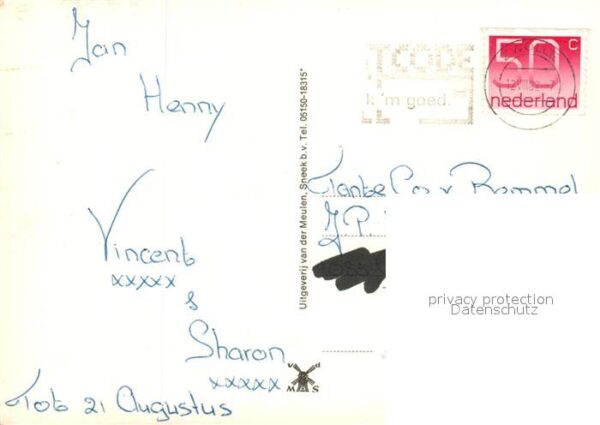 Jan
Henny
Vincent
xxxxx
&
Sharon
xxxxx
Tot 21 Augustus
Uitgeverij van der Meulen, Sneek b.v. Tel. 05150-18315*
v d
M S
TCODE
k 'm goed.
50 c
nederland
Tante Co v Rommel
J.P.
privacy protection
Datenschutz